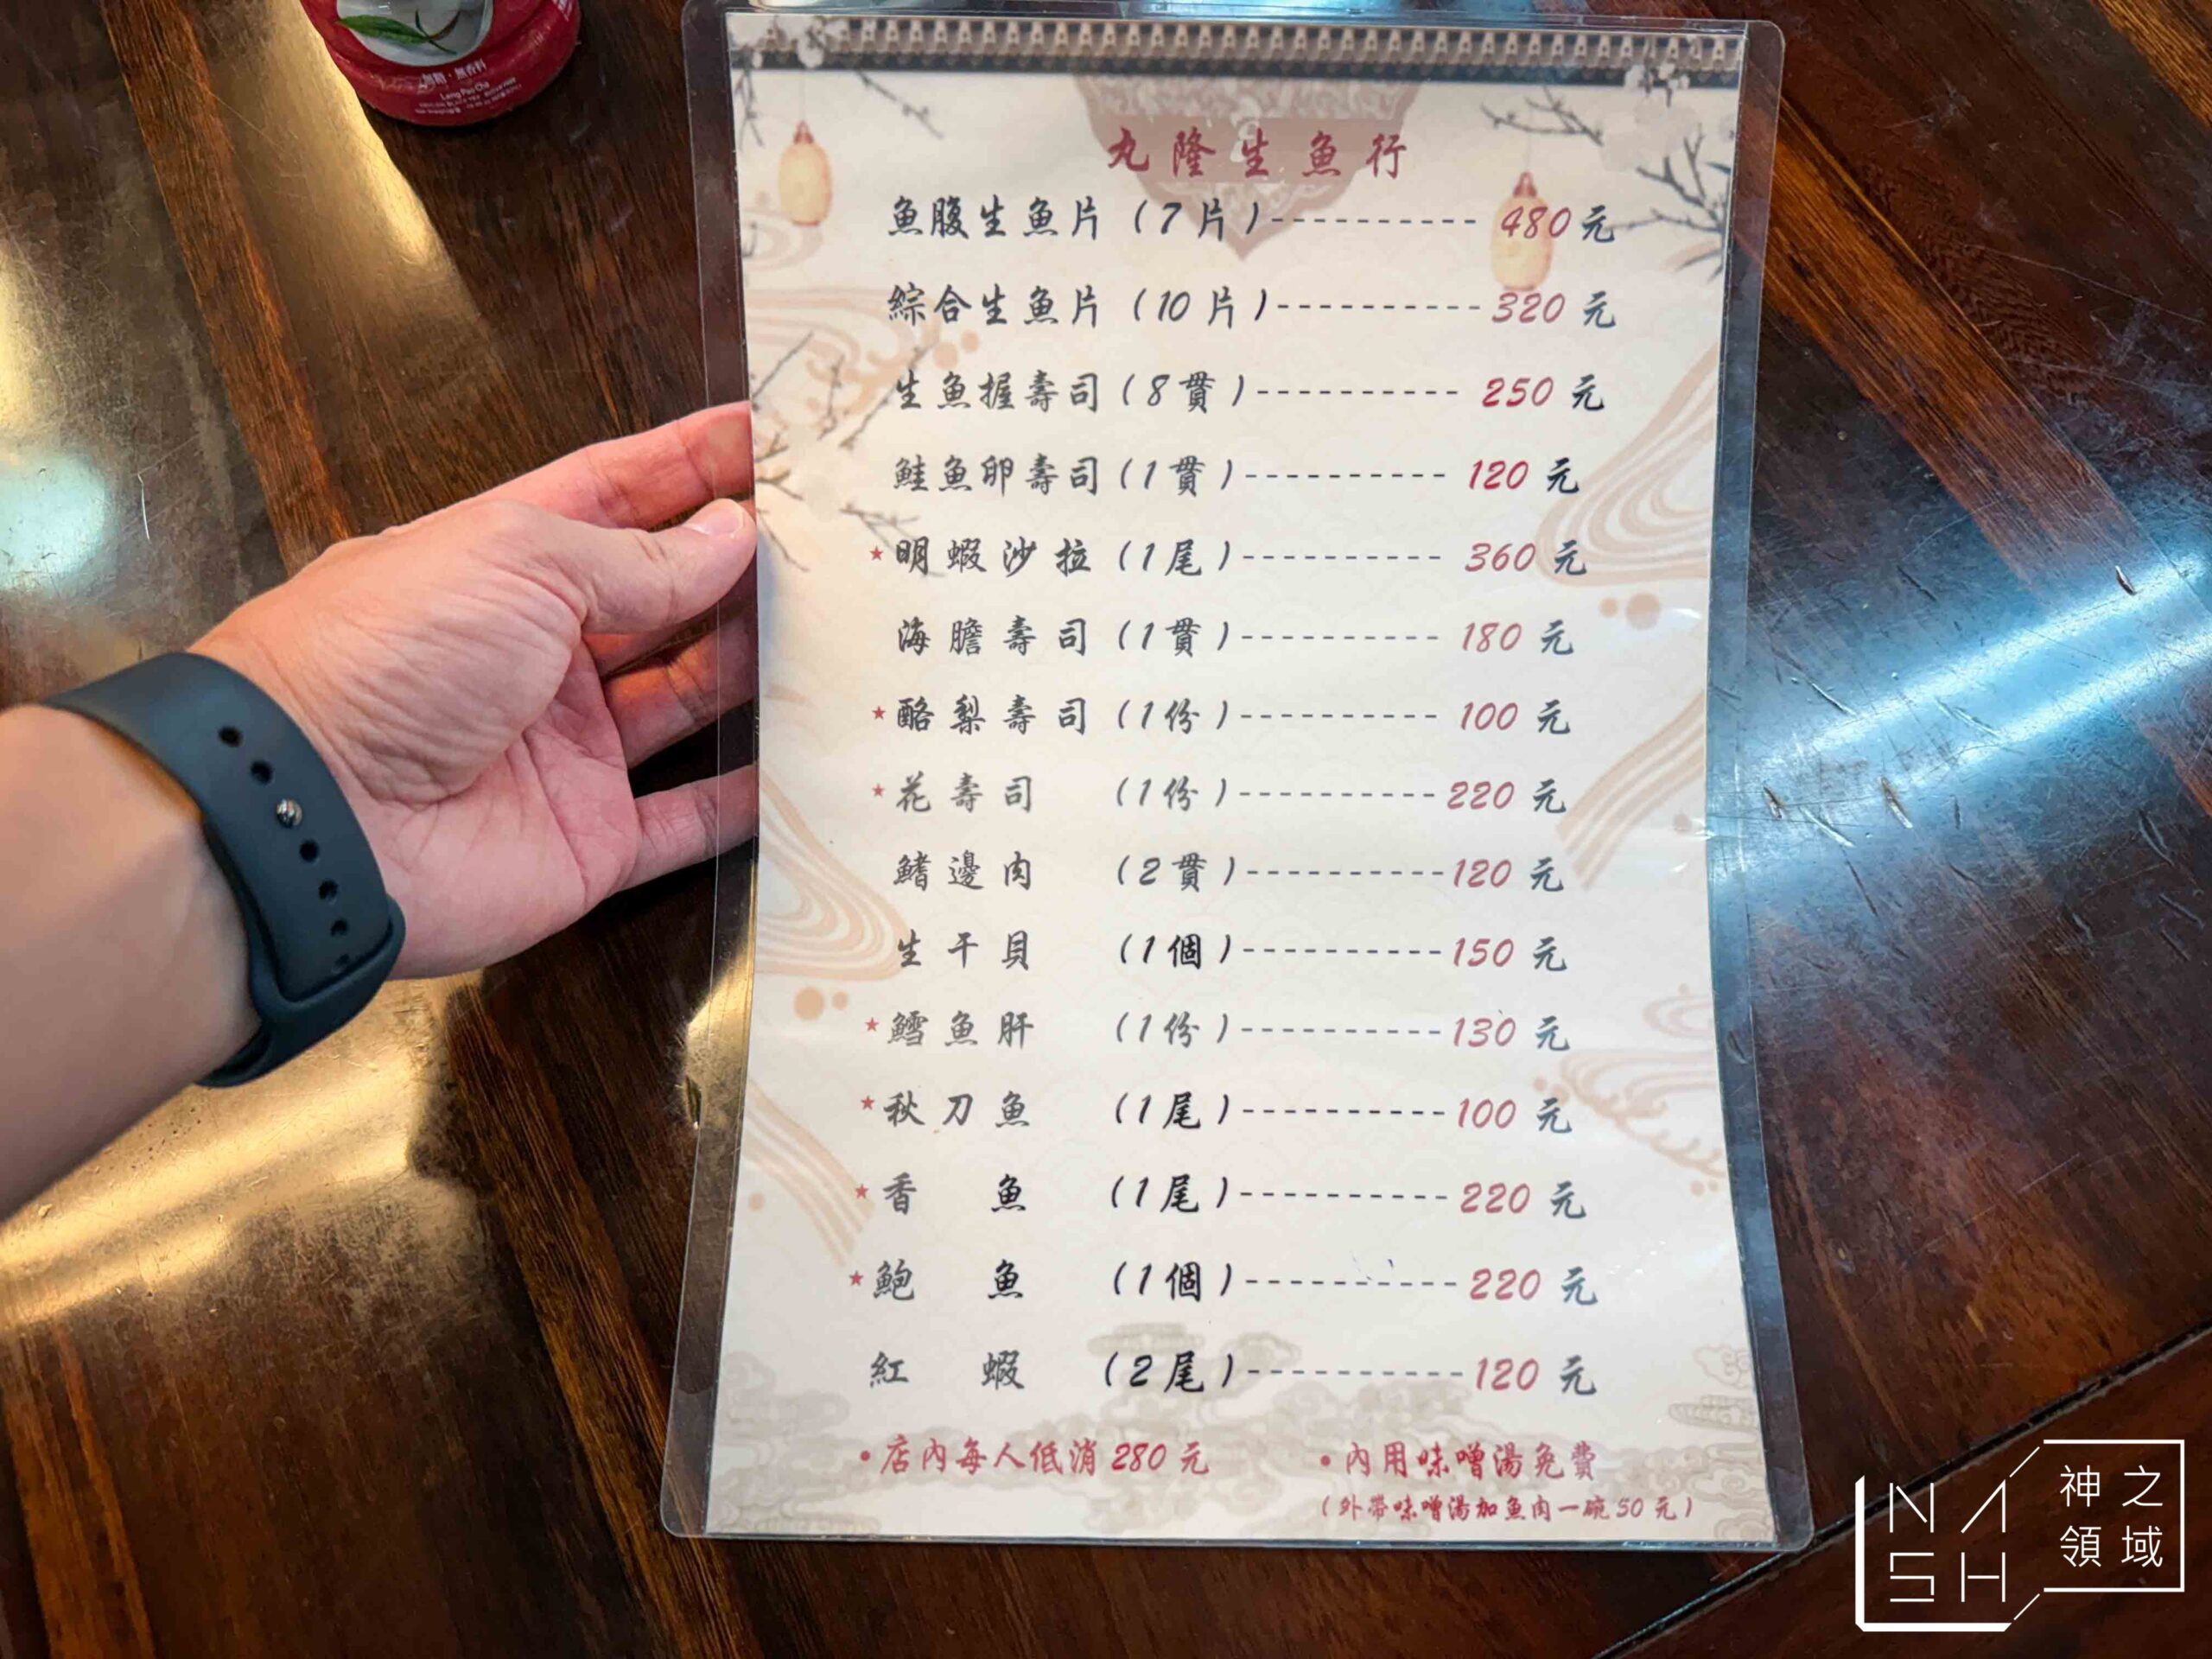 無糖・無香料
丸隆生魚行
魚腹生魚片(7片)---------- 480元
綜合生魚片(10片)---------- 320元
生魚握壽司(8貫)---------- 250元
鮭魚卵壽司(1貫)---------- 120元
★明蝦沙拉(1尾)---------- 360元
海膽壽司(1貫)---------- 180元
★酪梨壽司(1份)---------- 100元
★花壽司(1份)---------- 220元
鰭邊肉(2貫)---------- 120元
生干貝(1個)---------- 150元
★鱈魚肝(1份)---------- 130元
★秋刀魚(1尾)---------- 100元
★香魚(1尾)---------- 220元
★鮑魚(1個)---------- 220元
紅蝦(2尾)---------- 120元
•店內每人低消280元 •內用味噌湯免費
(外帶味噌湯加魚肉一碗50元)
NASH
神之領域